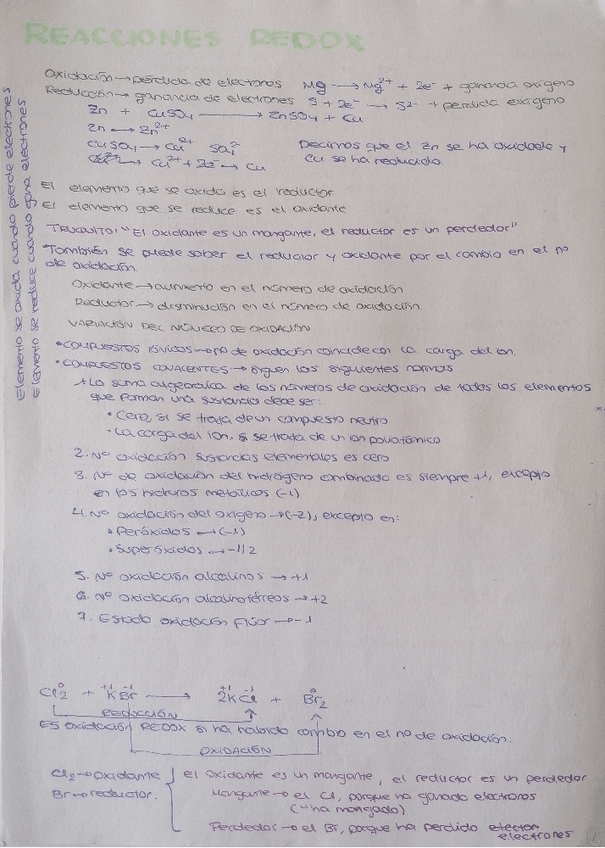 REACCIONES REDOX
Oxidación → pérdida de electrones Mg → Mg²⁺ + 2e⁻ + ganancia oxígeno
Reducción → ganancia de electrones S + 2e⁻ → S²⁻ + pérdida oxígeno
Zn + CuSO₄ → ZnSO₄ + Cu
Zn → Zn²⁺
CuSO₄ → Cu²⁺ SO₄²⁻ Decimos que el Zn se ha oxidado y
Cu²⁺ + 2e⁻ → Cu Cu se ha reducido.
El elemento que se oxida es el reductor
El elemento que se reduce es el oxidante
TRUQUITO: "El oxidante es un mangante, el reductor es un perdedor"
*También se puede saber el reductor y oxidante por el cambio en el nº
de oxidación
Oxidante → aumento en el número de oxidación
Reductor → disminución en el número de oxidación
VARIACIÓN DEL NÚMERO DE OXIDACIÓN
•COMPUESTOS IÓNICOS → nº de oxidación coincide con la carga del ion.
•COMPUESTOS COVALENTES → siguen las siguientes normas
1. La suma algebraica de los números de oxidación de todos los elementos
que forman una sustancia debe ser:
• Cero, si se trata de un compuesto neutro
• La carga del ion, si se trata de un ion poliatómico
2. Nº oxidación sustancias elementales es cero
3. Nº de oxidación del hidrógeno combinado es siempre +1, excepto
en los hidruros metálicos (-1)
4. Nº oxidación del oxígeno → (-2), excepto en:
• Peróxidos → (-1)
• Superóxidos → -1/2
5. Nº oxidación alcalinos → +1
6. Nº oxidación alcalinotérreos → +2
7. Estado oxidación Flúor → -1
Elemento se oxida cuando pierde electrones
Elemento se reduce cuando gana electrones
0 +1 -1 +1 -1 0
Cl₂ + KBr → 2KCl + Br₂
REDUCCIÓN
Es oxidación REDOX si ha habido cambio en el nº de oxidación.
OXIDACIÓN
Cl₂ → oxidante el oxidante es un mangante, el reductor es un perdedor
Br → reductor. Mangante → el Cl, porque ha ganado electrones
(≈ ha mangado)
Perdedor → el Br, porque ha perdido
electrones
1